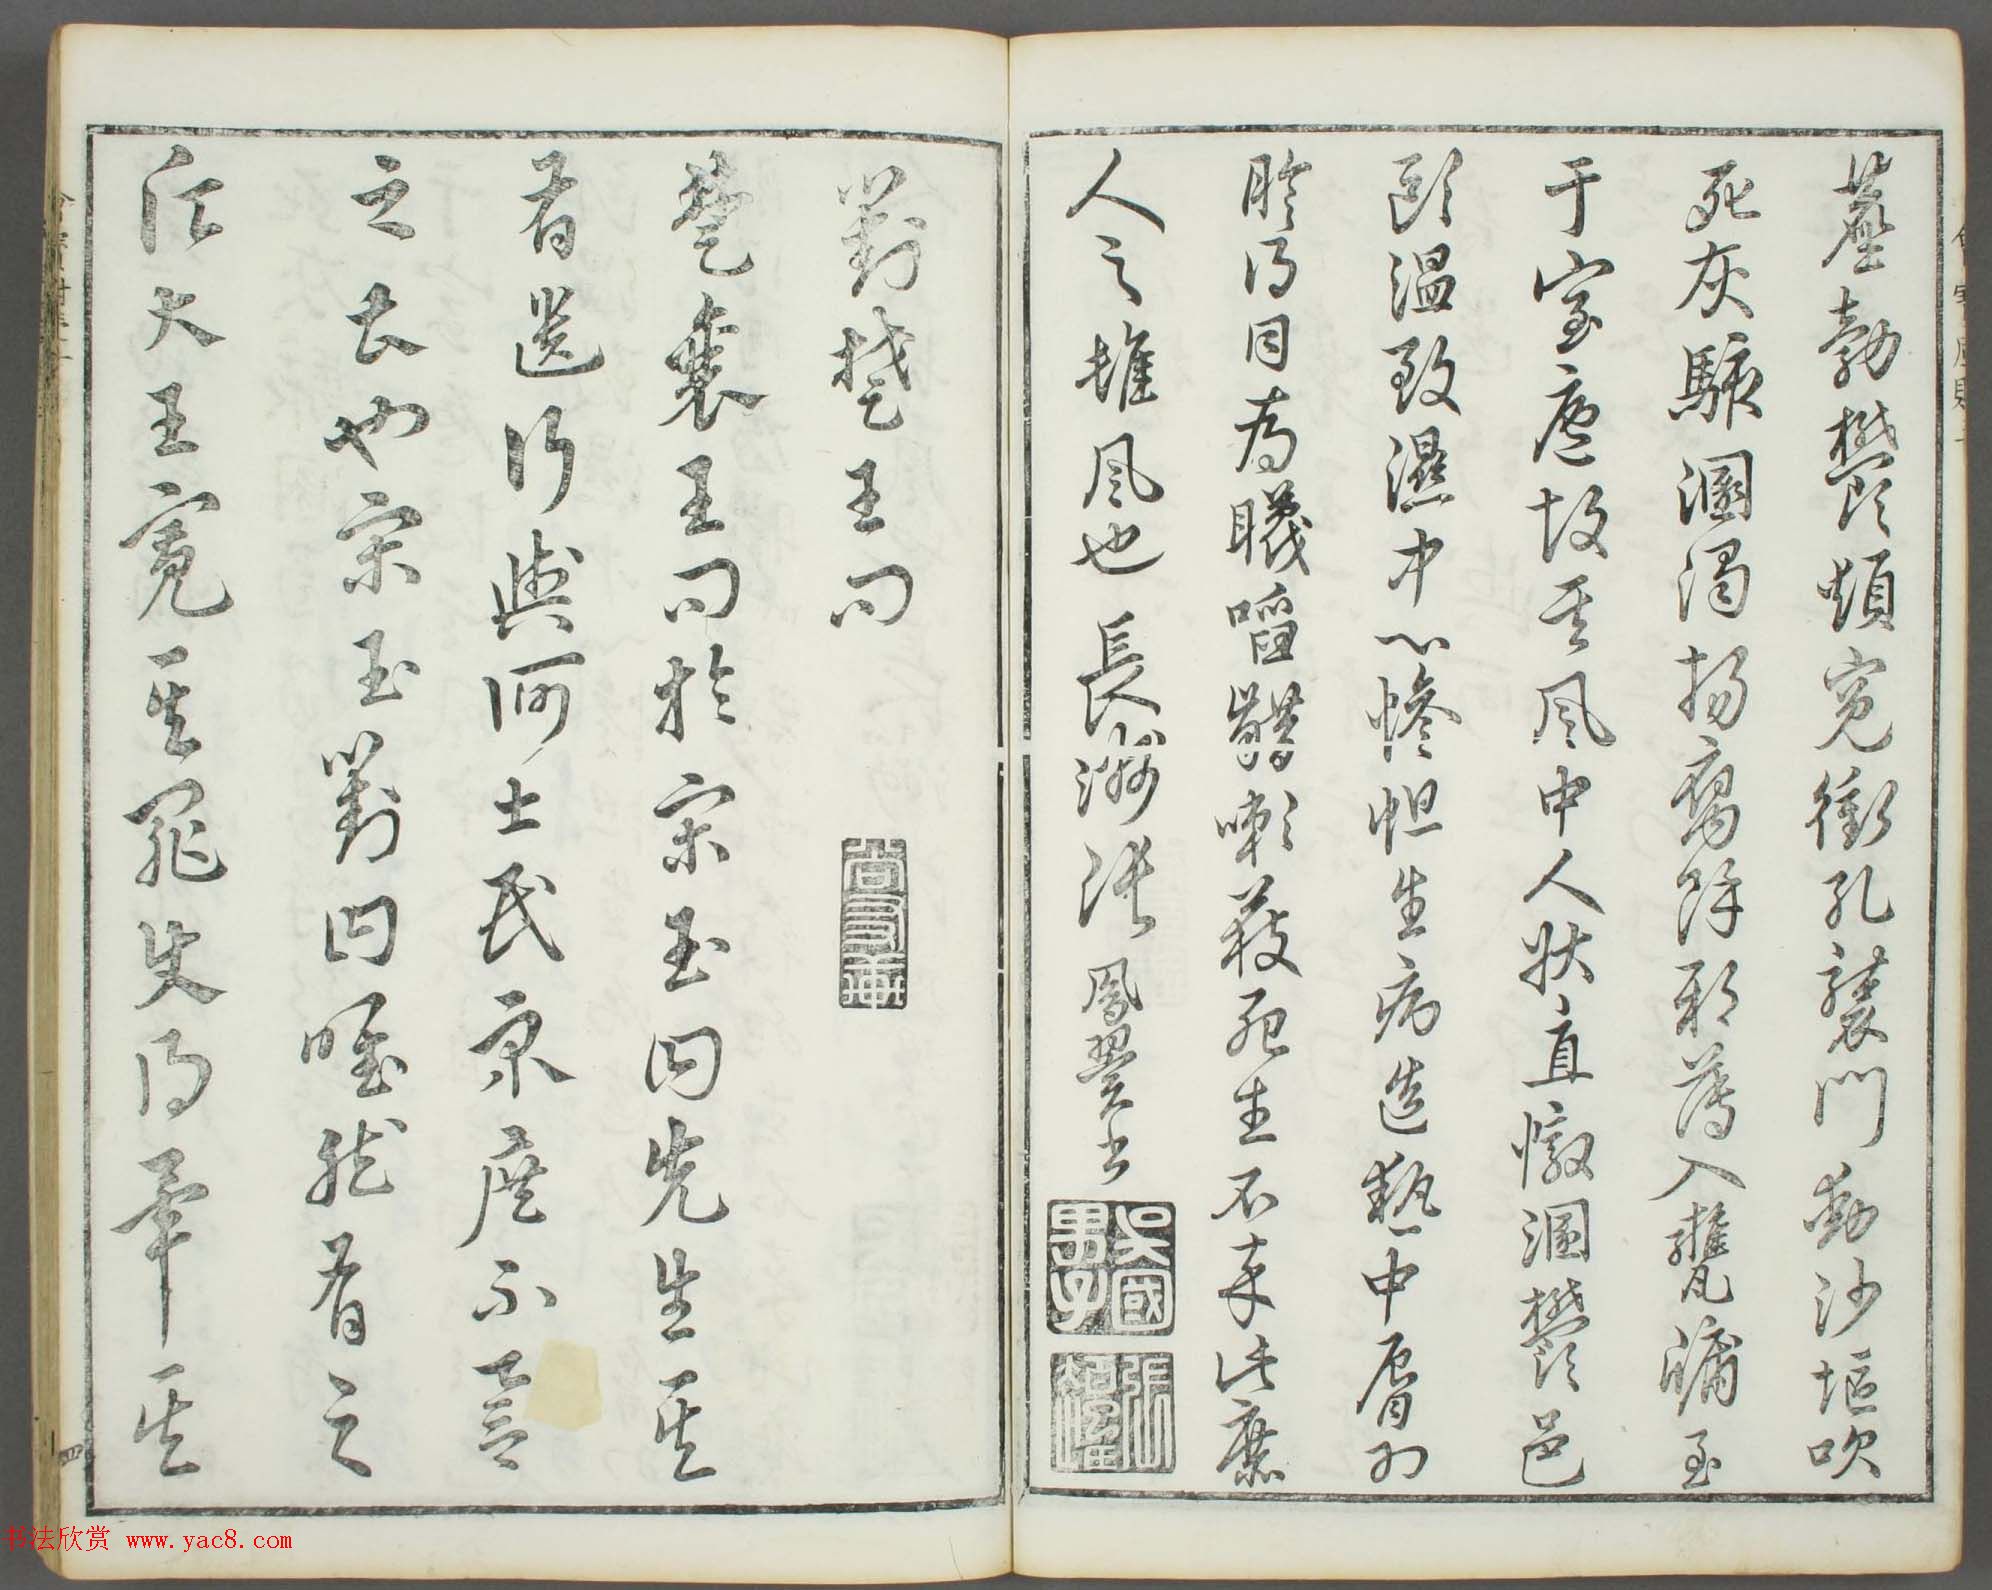 堁勃鬱煩冤衝孔襲門動沙堁吹
死灰駭溷濁揚腐餘邪薄入甕牖至
于室廬故其風中人狀直憞溷鬱邑
毆溫致濕中心慘怛生病造熱中脣為
胗得目為蔑啗齰嗽獲死生不卒此庶
人之雄風也長洲張鳳翼書
吳國男子
張
對楚王問
楚襄王問於宋玉曰先生其
有遺行與何士民衆庶不譽
之甚也宋玉對曰唯然有之
願大王寬其罪使得畢其
四
书法欣赏 www.yac8.com